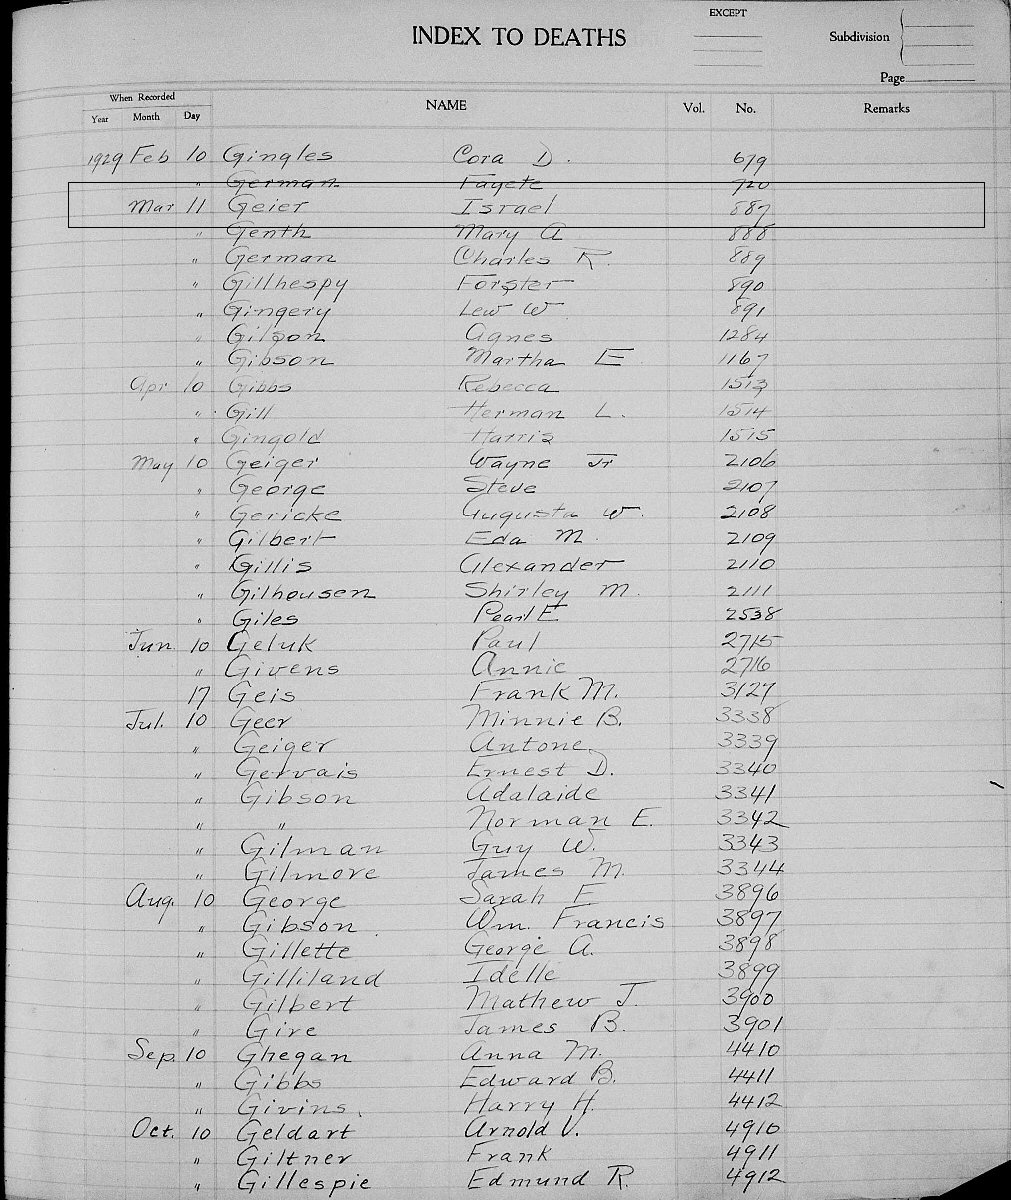 EXCEPT
INDEX TO DEATHS
Subdivision
Page
When Recorded
Year Month Day NAME Vol. No. Remarks
1929 Feb 10 Gingles Cora D. 679
" German Fayete 720
Mar 11 Geier Israel 887
" Genth Mary A 888
" German Charles R. 889
" Gillhespy Forster 890
" Gingery Lew W 891
" Gilson Agnes 1284
" Gibson Martha E 1167
Apr 10 Gibbs Rebecca 1513
" Gill Herman L. 1514
" Gingold Harris 1515
May 10 Geiger Wayne Jr 2106
" George Steve 2107
" Gericke Augusta W. 2108
" Gilbert Eda M. 2109
" Gillis Alexander 2110
" Gilhousen Shirley M. 2111
" Giles Pearl E 2538
Jun 10 Geluk Paul 2715
" Givens Annie 2716
17 Geis Frank M. 3127
Jul. 10 Geer Minnie B. 3338
" Geiger Antone 3339
" Gervais Ernest D. 3340
" Gibson Adalaide 3341
" " Norman E. 3342
" Gilman Guy W. 3343
" Gilmore James M. 3344
Aug. 10 George Sarah E 3896
" Gibson Wm. Francis 3897
" Gillette George A. 3898
" Gilliland Idelle 3899
" Gilbert Mathew J. 3900
" Give James B. 3901
Sep. 10 Ghegan Anna M. 4410
" Gibbs Edward B. 4411
" Givins. Harry H. 4412
Oct. 10 Geldart Arnold V. 4910
" Giltner Frank 4911
" Gillespie Edmund R. 4912